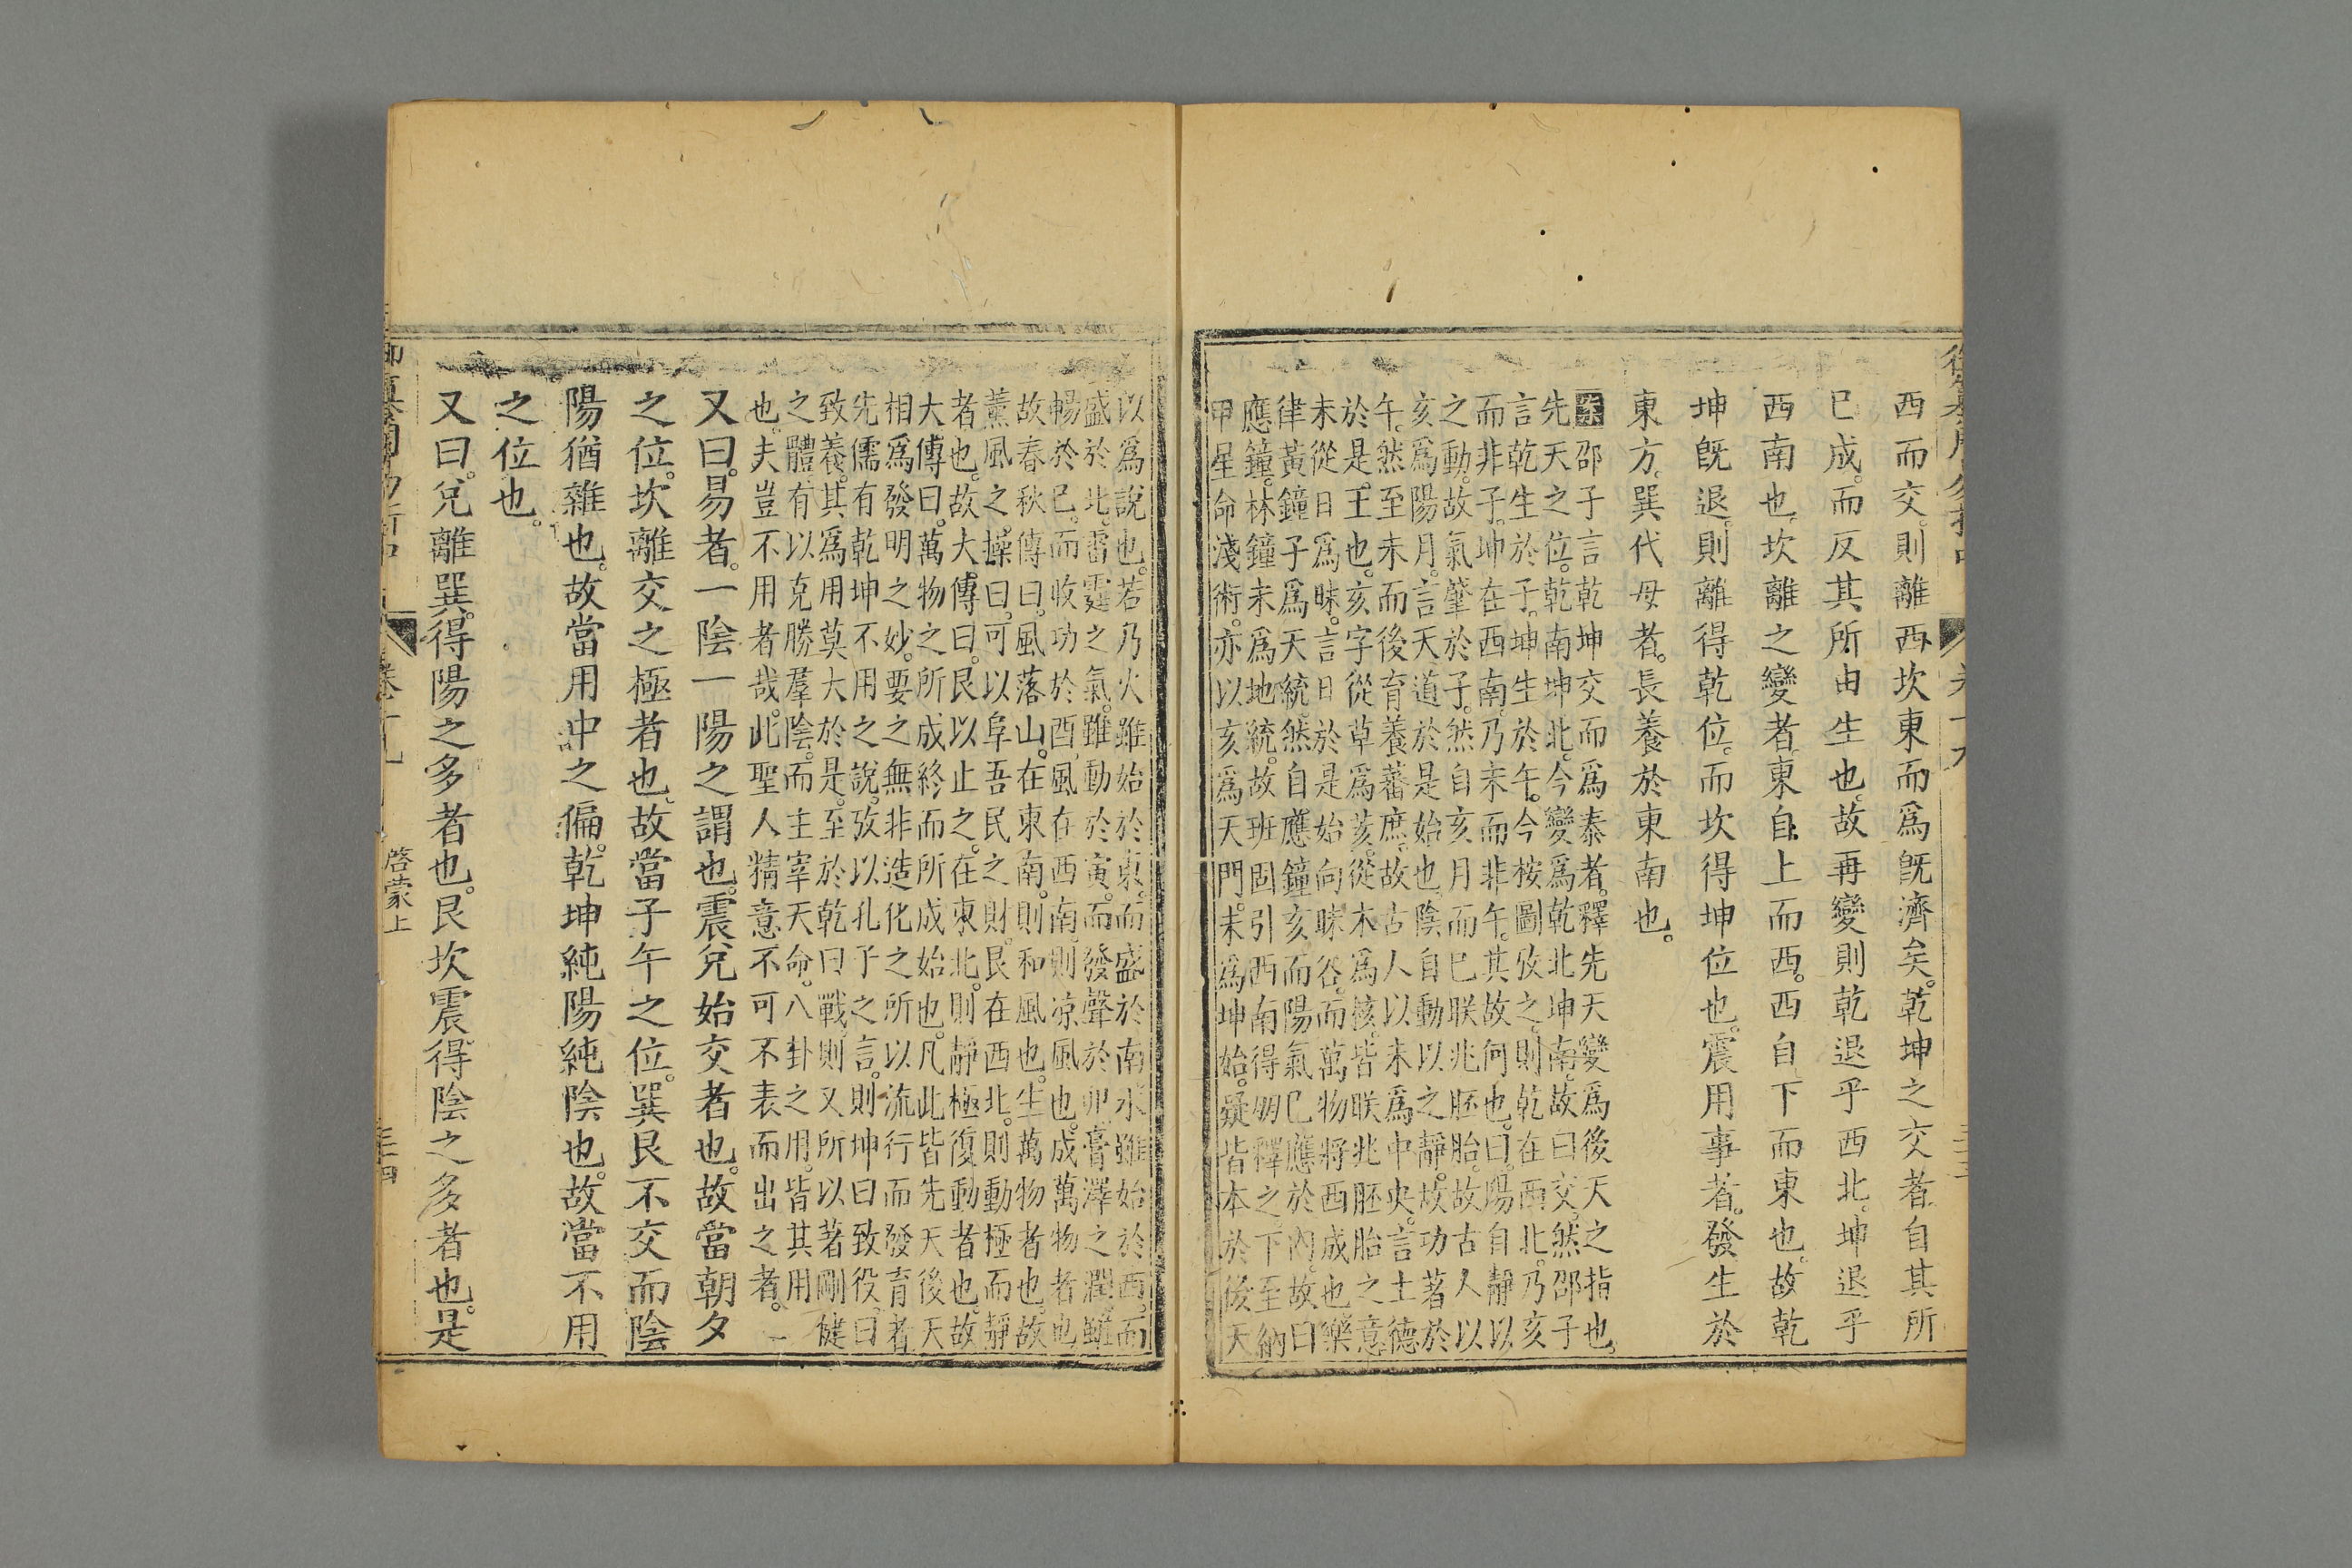 西而交。則離西坎東而爲旣濟矣。乾坤之交者。自其所
已成。而反其所由生也。故再變則乾退乎西北。坤退乎
西南也。坎離之變者。東自上而西。西自下而東也。故乾
坤旣退。則離得乾位。而坎得坤位也。震用事者。發生於
東方。巽代母者。長養於東南也。
邵子言乾坤交而爲泰者。釋先天變爲後天之指也。
先天之位。乾南坤北。今變爲乾北坤南。故曰交。然邵子
言乾生於子。坤生於午。今按圖攷之。則乾在西北。乃亥
而非子。坤在西南。乃未而非午。其故何也。曰。陽自靜以
之動。故氣肇於子。然自亥月而已朕兆胚胎。故古人以
亥爲陽月。言天道於是始也。陰自動以之靜。故功著於
午。然至未而後育養蕃庶。故古人以未爲中央。言土德
於是王也。亥字從草爲荄。從木爲核。皆朕兆胚胎之意
未從日爲昧。言日於是始向昧谷。而萬物將西成也。樂
律黃鐘子爲天統。然自應鐘亥而陽氣已應於內。故曰
應鐘。林鐘未爲地統。故班固引西南得朋釋之。下至納
甲星命淺術。亦以亥爲天門。未爲坤始。疑皆本於後天
以爲說也。若乃火雖始於東。而盛於南。水雖始於西。而
盛於北。雷霆之氣。雖動於寅。而發聲於卯。膏澤之潤。雖
暢於巳。而收功於酉。風在西南。則凉風也。成萬物者也
故春秋傳曰。風落山。在東南。則和風也。生萬物者也。故
薰風之操曰。可以阜吾民之財。艮在西北。則動極而靜
者也。故大傳曰。艮以止之。在東北。則靜極復動者也。故
大傳曰。萬物之所成終而所成始也。凡此皆先天後天
相爲發明之妙。要之無非造化之所以流行而發育者
先儒有乾坤不用之說。攷以孔子之言。則坤曰致役。曰
致養。其爲用莫大於是。至於乾曰戰。則又所以著剛健
之體。有以克勝羣陰。而主宰天命。八卦之用。皆其用
也。夫豈不用者哉。此聖人精意不可不表而出之者。
又曰。易者。一陰一陽之謂也。震兌始交者也。故當朝夕
之位。坎離交之極者也。故當子午之位。巽艮不交而陰
陽猶雜也。故當用中之偏。乾坤純陽純陰也。故當不用
之位也。
又曰。兌離巽。得陽之多者也。艮坎震得陰之多者也。是
啓蒙上